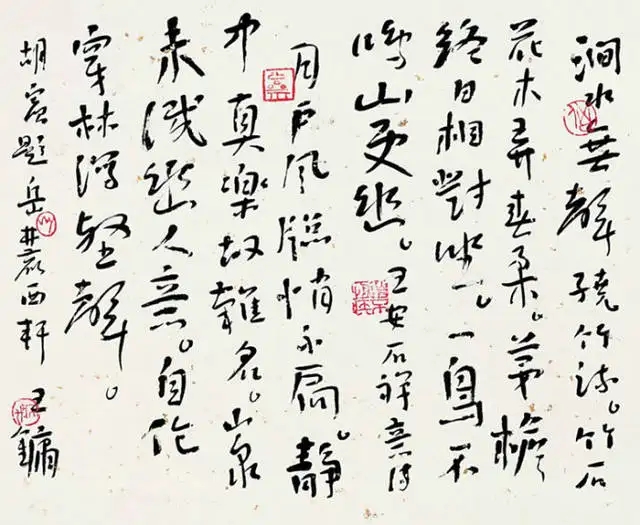 澗水無聲繞竹流。竹石
花木弄春柔。茅檐
終日相對坐。一鳥不
鳴山更幽。王安石禪意詩
月戶風牕悄不扃。靜
中真樂故難名。山泉
未識幽人意。自作
穿林壑聲。
胡寅題岳麓西軒 王鏞